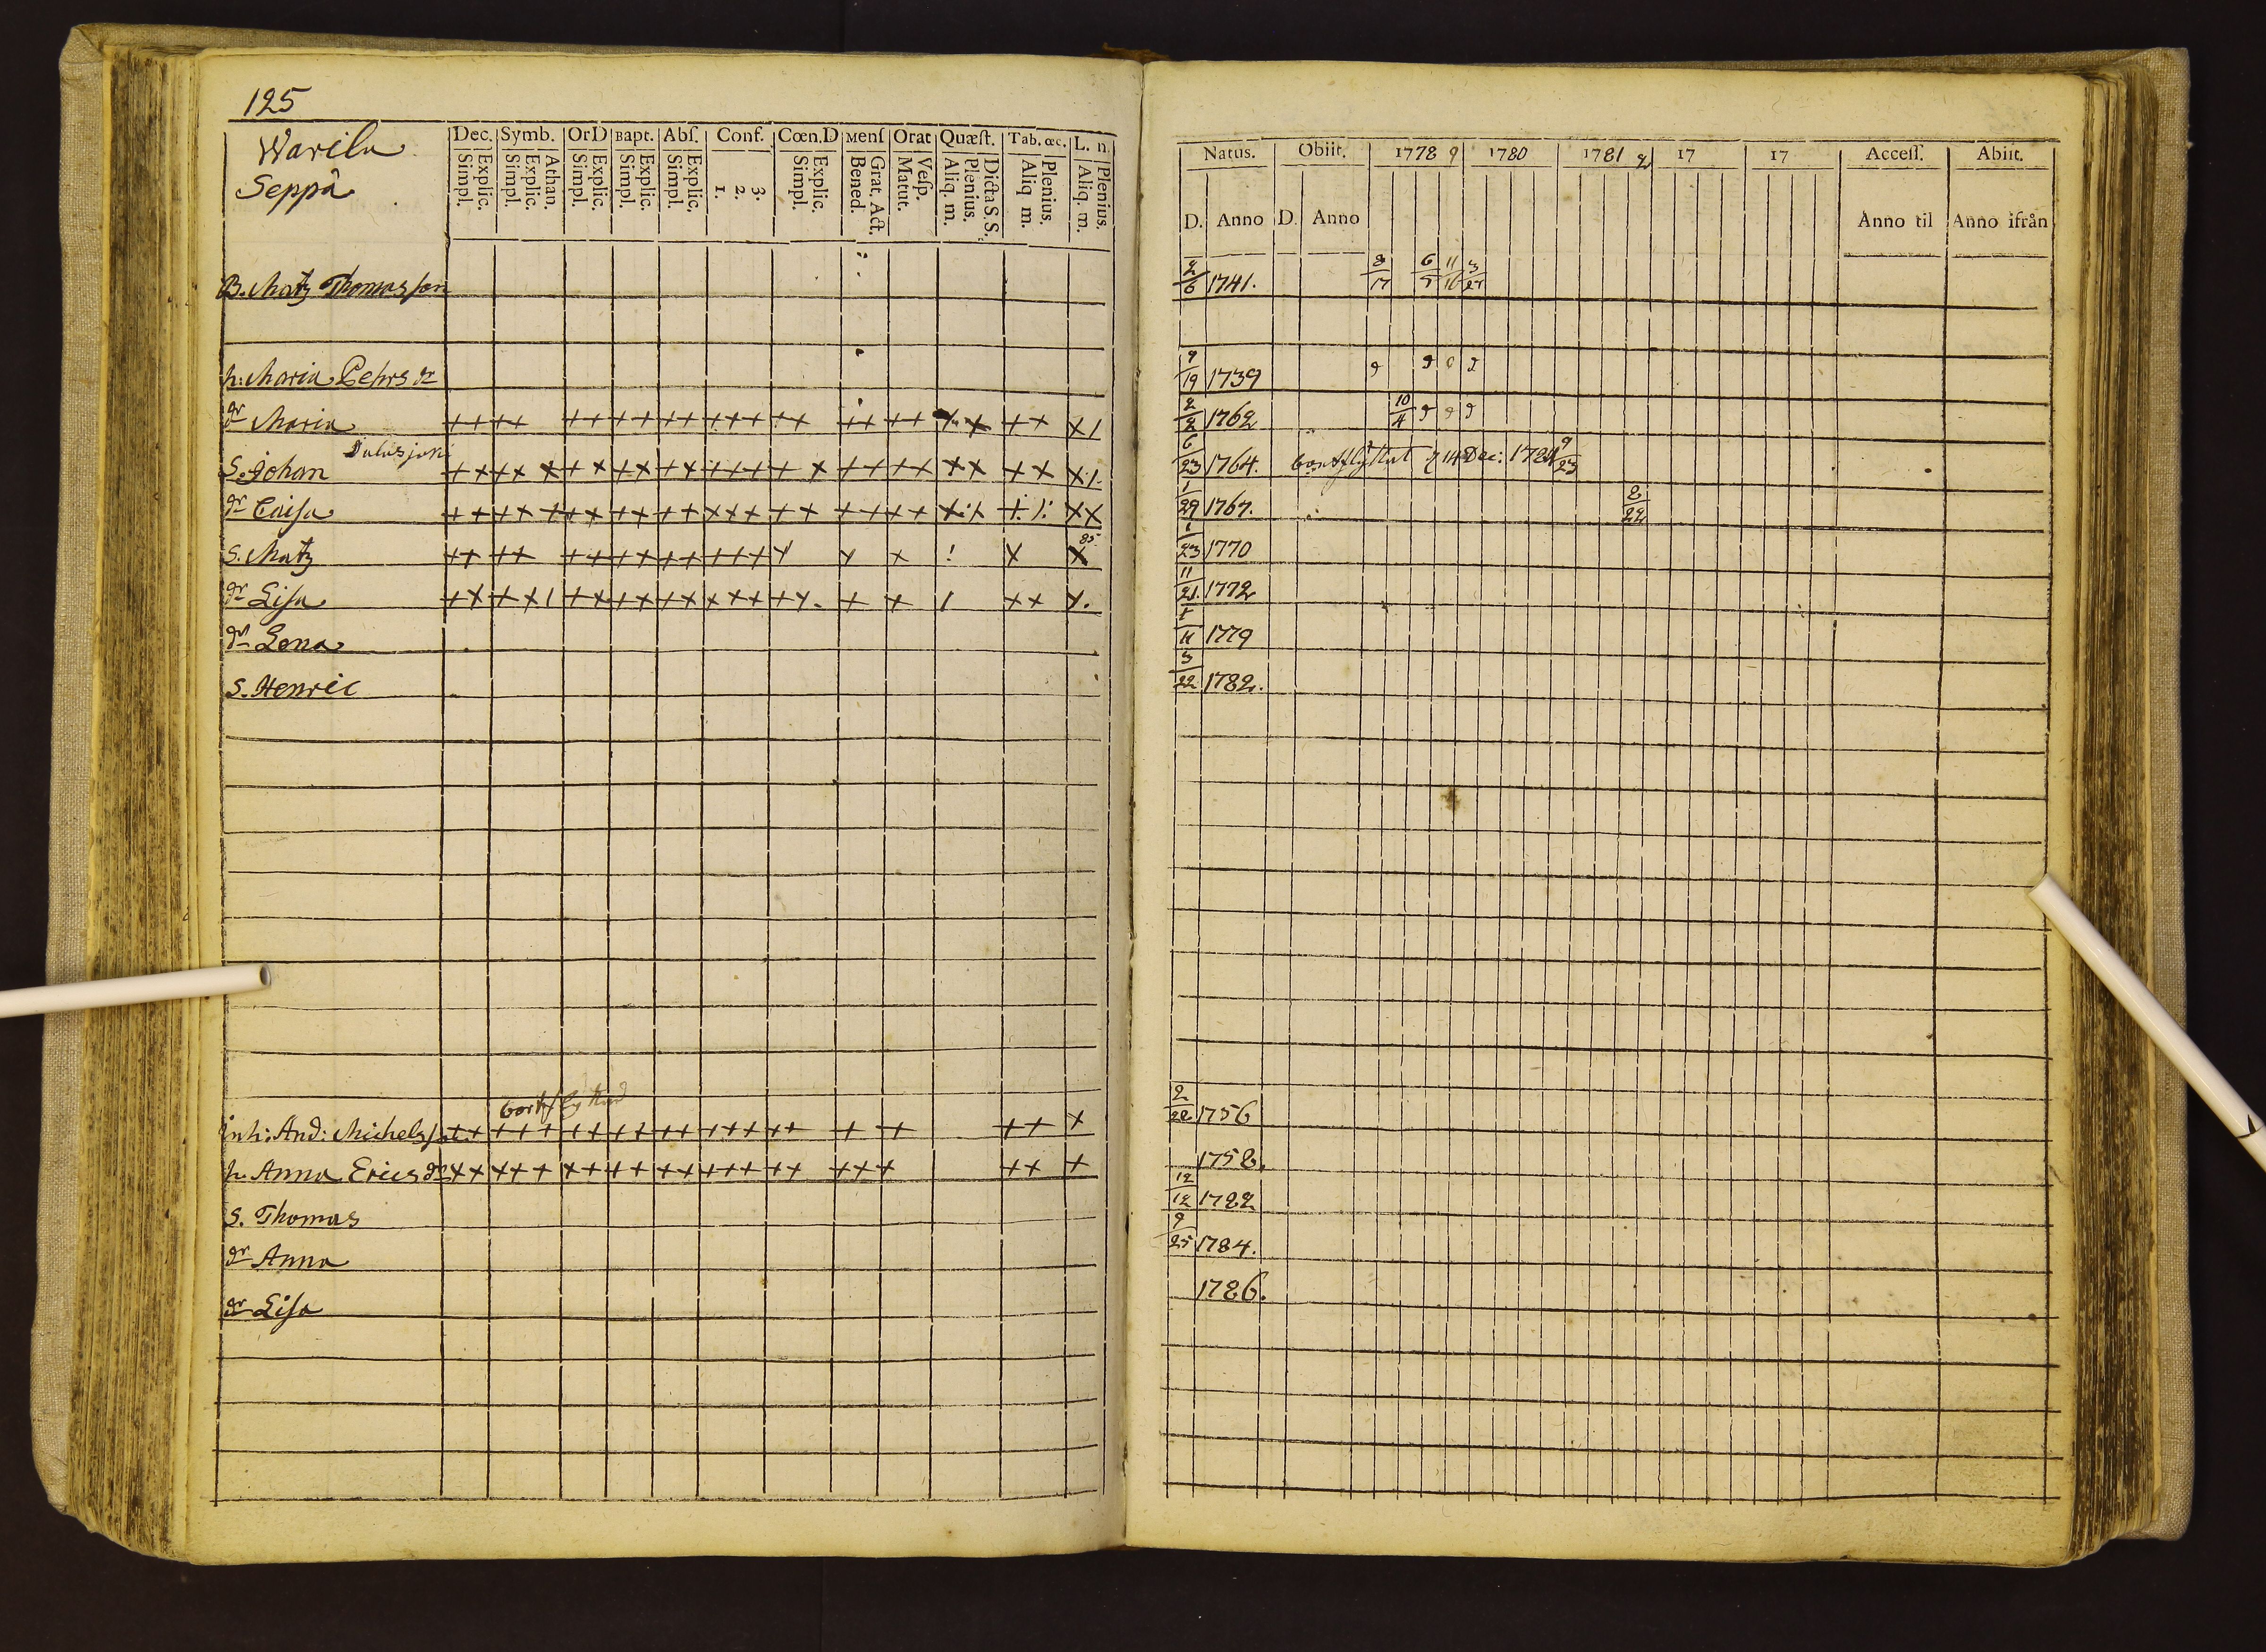 125
Warila
Seppä
Dec. Symb. OrD Bapt. Abſ. Conf. Cœn.D Menſ Orat Quæſt. Tab. œc. L. n.
Simpl. Explic. Simpl. Explic. Athan. Simpl. Explic. Simpl. Explic. Simpl. Explic. 1. 2. 3. Simpl. Explic. Bened. Grat. Act. Matut. Veſp. Aliq. m. Plenius. Dicta S.S. Aliq m. Plenius. Aliq. m. Plenius.
B. Matz Thomasson
h: Maria Pehrs dr
dr Maria ++ ++ ++ ++ ++ +++ ++ ++ ++ ++
S. Johan
dr Caisa
85
S. Matz
dr Lisa
dr Lena
S. Henric
inh: And: Michelsson
h. Anna Erics dr
S. Thomas
dr Anna
dr Lisa
Natus. Obiit. 1778 9 1780 1781 2 17 17 Acceſſ. Abiit.
D. Anno D. Anno Anno til Anno ifrån
1741. 8/17
9/19 1739
2/2 1762 10/4
6/23 1764. 14 Dec: 1784 9/23
1/29 1767. 8/22
1/23 1770
11/21. 1772
1779
3/22 1782.
2/22 1756
1758.
12/12 1782
9/25 1784.
1786.